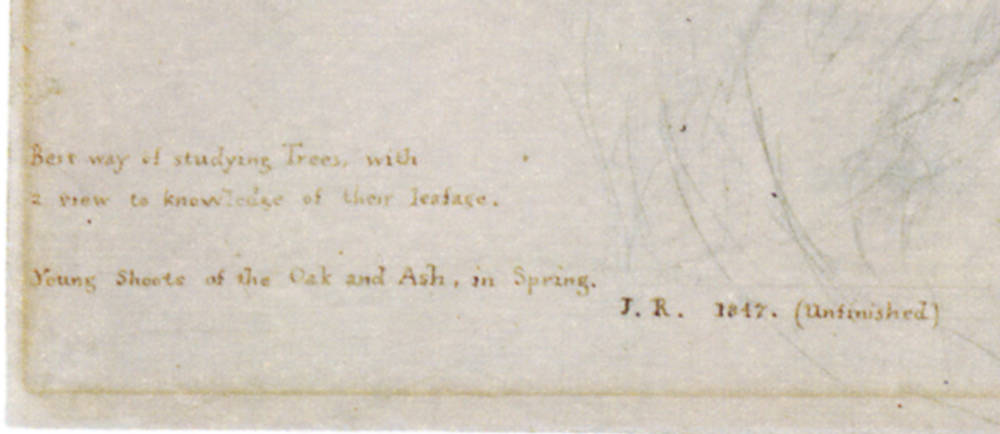 Best way of studying Trees, with
a view to knowledge of their leafage.
Young Shoots of the Oak and Ash, in Spring.
J. R. 1847. (Unfinished)